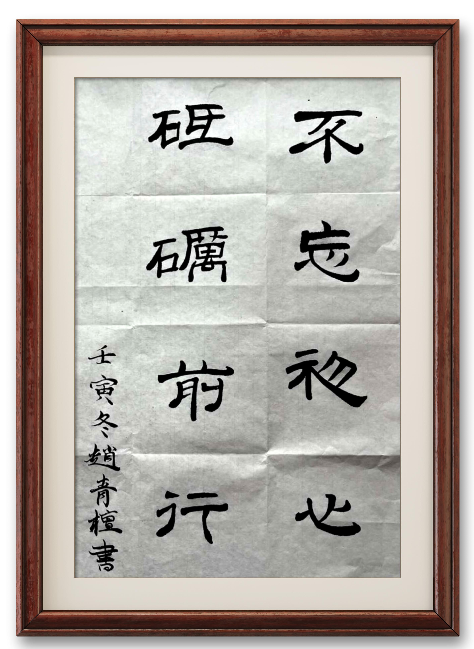 不忘初心
砥礪前行
壬寅冬趙青檀書